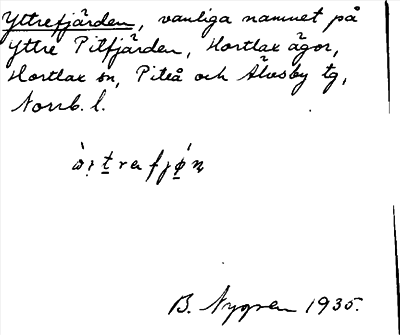 Yttrefjärden, vanliga namnet på
yttre Pitfjärden, Hortlax ägor,
Hortlax sn, Piteå och Älvsby tg,
Norrb. l.
B. Nygren 1935.